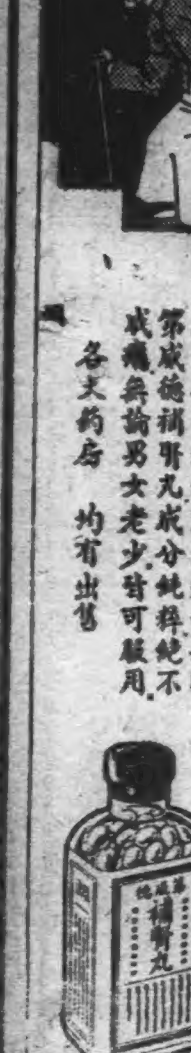 第威德補腎丸成分純粹絕不
成癮無論男女老少皆可服用。
各大藥房 均有出售
第威德
補腎丸